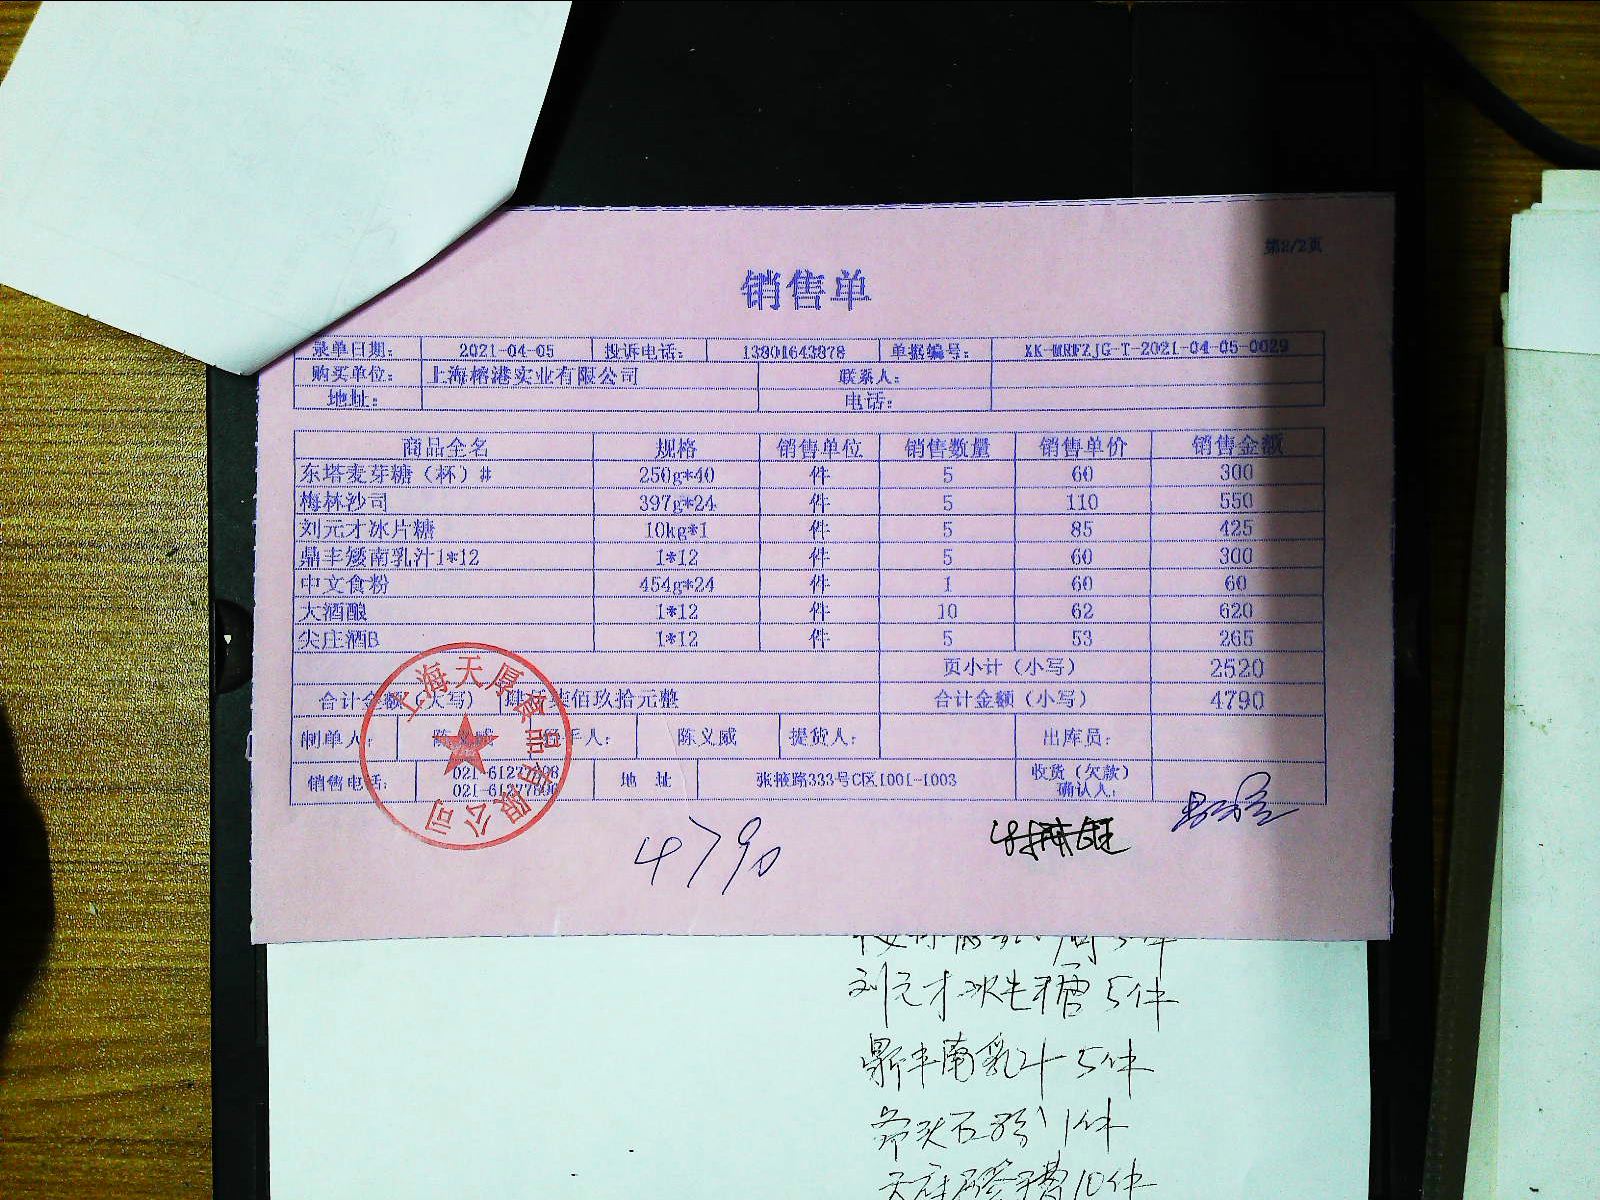 第2/2页
销售单
录单日期： 2021-04-05 投诉电话： 13801643878 单据编号： XK-MRFZJG-T-2021-04-05-0029
购买单位： 上海榕港实业有限公司 联系人：
地址： 电话：
商品全名 规格 销售单位 销售数量 销售单价 销售金额
东塔麦芽糖（杯）# 250g*40 件 5 60 300
梅林沙司 397g*24 件 5 110 550
刘元才冰片糖 10kg*1 件 5 85 425
鼎丰矮南乳汁1*12 1*12 件 5 60 300
中文食粉 454g*24 件 1 60 60
大酒酿 1*12 件 10 62 620
尖庄酒B 1*12 件 5 53 265
页小计（小写） 2520
合计金额（大写） 肆仟柒佰玖拾元整 合计金额（小写） 4790
制单人： 陈义威 经手人： 陈义威 提货人： 出库员：
销售电话： 021-61277808 地 址 张掖路333号C区1001-1003 收货（欠款）
021-61277806 确认人：
上海天厚食品有限公司
4790
刘元才冰片糖 5件
鼎丰南乳汁 5件
1件
10件